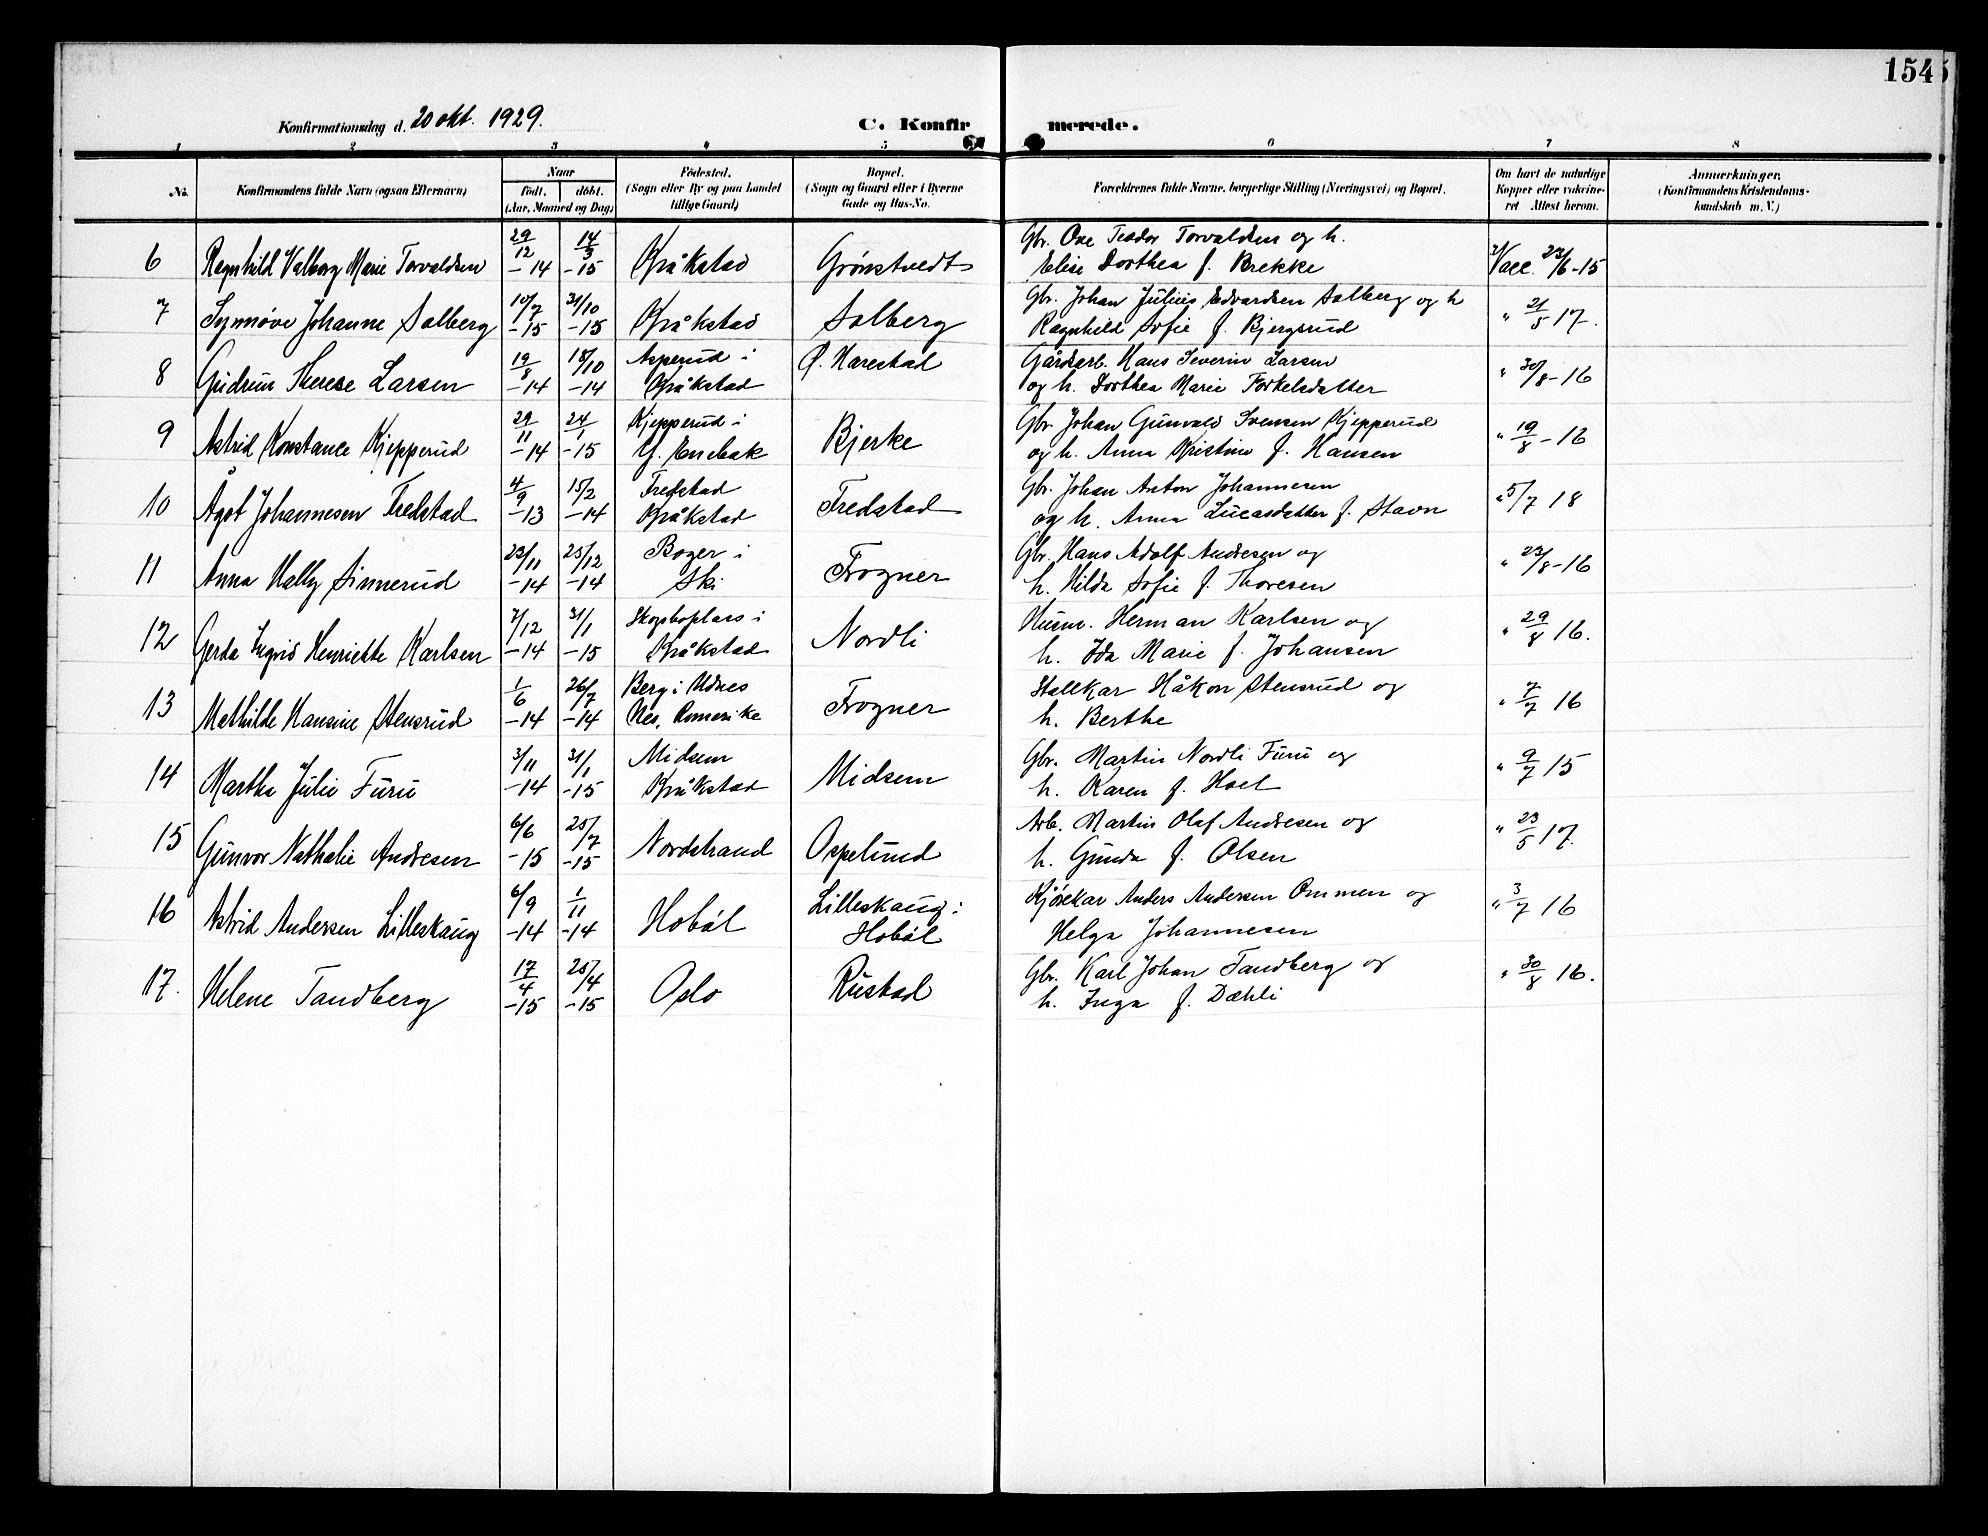 1545
Konfirmationsdag d. 20 okt. 1929.
C. Konfirmerede.
1 2 3 4 5 6 7 8
No.
Konfirmandens fulde Navn (ogsaa Efternavn)
Naar
født. døbt.
(Aar, Maaned og Dag)
Fødested.
(Sogn eller By og paa Landet
tillige Gaard)
Bopæl.
(Sogn og Gaard eller i Byerne
Gade og Hus-No.
Forældrenes fulde Navne, borgerlige Stilling (Næringsvei) og Bopæl.
Om havt de naturlige
Kopper eller vakcine-
ret Attest herom.
Anmærkninger.
(Konfirmandens Kristendoms-
kundskab m. V.)
6 Ragnhild Valborg Marie Torvaldsen 29/12 -14 14/3 -15 Kråkstad Grønstvedt Gbr. Ove Teodor Torvaldsen og h.
Elise Dorthea f. Brekke Vacc. 22/6-15
7 Synnøve Johanne Solberg 10/7 -15 31/10 -15 Kråkstad Solberg Gbr. Johan Julius Edvardsen Solberg og h
Ragnhild Sofie f. Bjergsrud " 21/5 17.
8 Gudrun Therese Larsen 19/8 -14 18/10 -14 Asperud i
Kråkstad Ø. Harestad Gårdsarb. Hans Severin Larsen
og h. Dorthea Marie Torkelsdatter " 30/8-16
9 Astrid Konstance Kjepperud 29/11 -14 24/1 -15 Kjepperud i
Y. Enebak Bjerke Gbr. Johan Gunvald Svensen Kjepperud
og h. Anna Kristine f. Hansen " 19/8-16
10 Ågot Johannesen Fredstad 4/9 -13 15/2 -14 Fredstad
Kråkstad Fredstad Gbr. Johan Anton Johannesen
og h. Anna Lucasdatter f. Stavn " 5/7 18
11 Anna Hally Sinnerud 23/11 -14 25/12 -14 Boger i
Ski Frogner Gbr. Hans Adolf Andresen og
h. Hilda Sofie f. Thoresen " 23/8-16
12 Gerda Ingrid Henriette Karlsen 7/12 -14 31/1 -15 Skogsboplass i
Kråkstad Nordli Husm. Herman Karlsen og
h. Ida Marie f. Johansen " 29/8 16.
13 Mathilde Hansine Stensrud 1/6 -14 26/7 -14 Berg i Udnes
Nes, Romerike Frogner Stallkar Håkon Stensrud og
h. Berthe " 7/7 16
14 Martha Julie Furu 3/11 -14 31/1 -15 Midsem
Kråkstad Midsem Gbr. Martin Nordli Furu og
h. Karen f. Hoel " 9/7 15
15 Gunvor Nathalie Andresen 6/6 -15 25/7 -15 Nordstrand Ospelund Arb. Martin Olaf Andresen og
h. Gunda f. Olsen " 23/5 17.
16 Astrid Andersen Lilleskaug 6/9 -14 1/11 -14 Hobøl Lilleskaug i
Hobøl Kjørekar Anders Andersen Ommen og
Helga Johannesen " 3/7 16
17. Helene Tandberg 17/4 -15 25/4 -15 Oslo Rustad Gbr. Karl Johan Tandberg og
h. Inga f. Dæhli " 30/8 16.